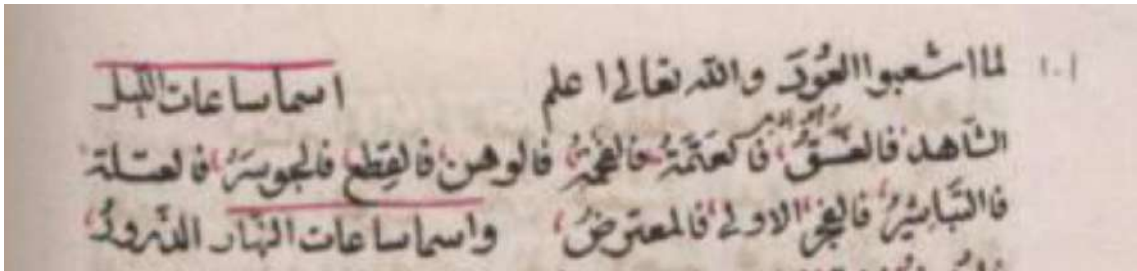 لما اشعبوا العُودَ والله تعالى اعلم اسما ساعات الليل
الشاهد فالغَسَقُ، فالعَتَمَةُ، فالفَحْمَةُ، فالوهن، فالقِطع، فالجوسَرُ، فالعتلة
فالتَّباشِيْرُ، فالفجرُ الاولى، فالمعترضُ، واسما ساعات النهار الذرورُ،